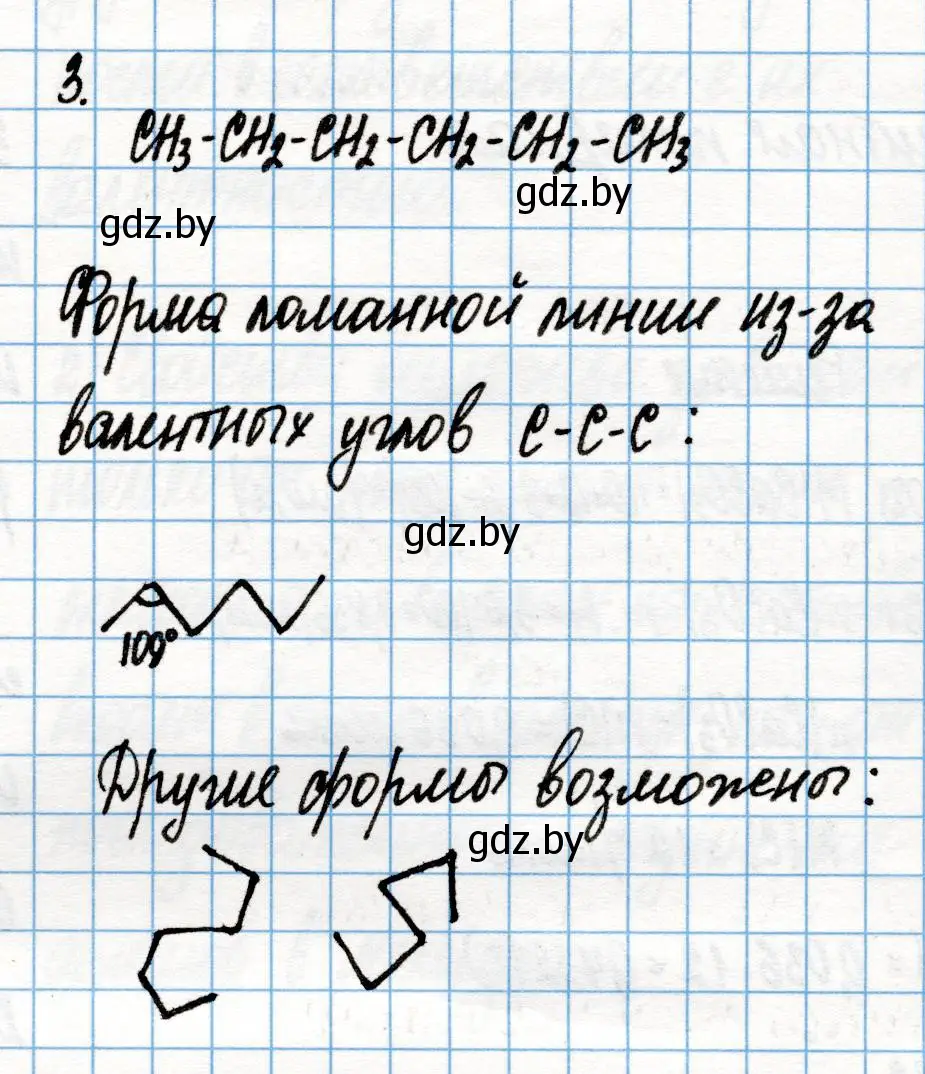 3.
CH3-CH2-CH2-CH2-CH2-CH3
gdz.by
gdz.by
Форма ломанной линии из-за
валентных углов C-C-C:
gdz.by
109°
Другие формы возможены:
gdz.by